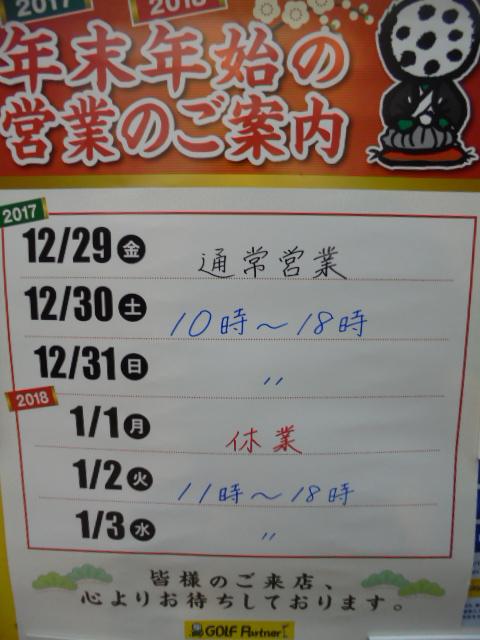 2017 2018
年末年始の
営業のご案内
2017
12/29 金 通常営業
12/30 土 10時～18時
12/31 日 〃
2018
1/1 月 休業
1/2 火 11時～18時
1/3 水 〃
皆様のご来店、
心よりお待ちしております。
GOLF Partner